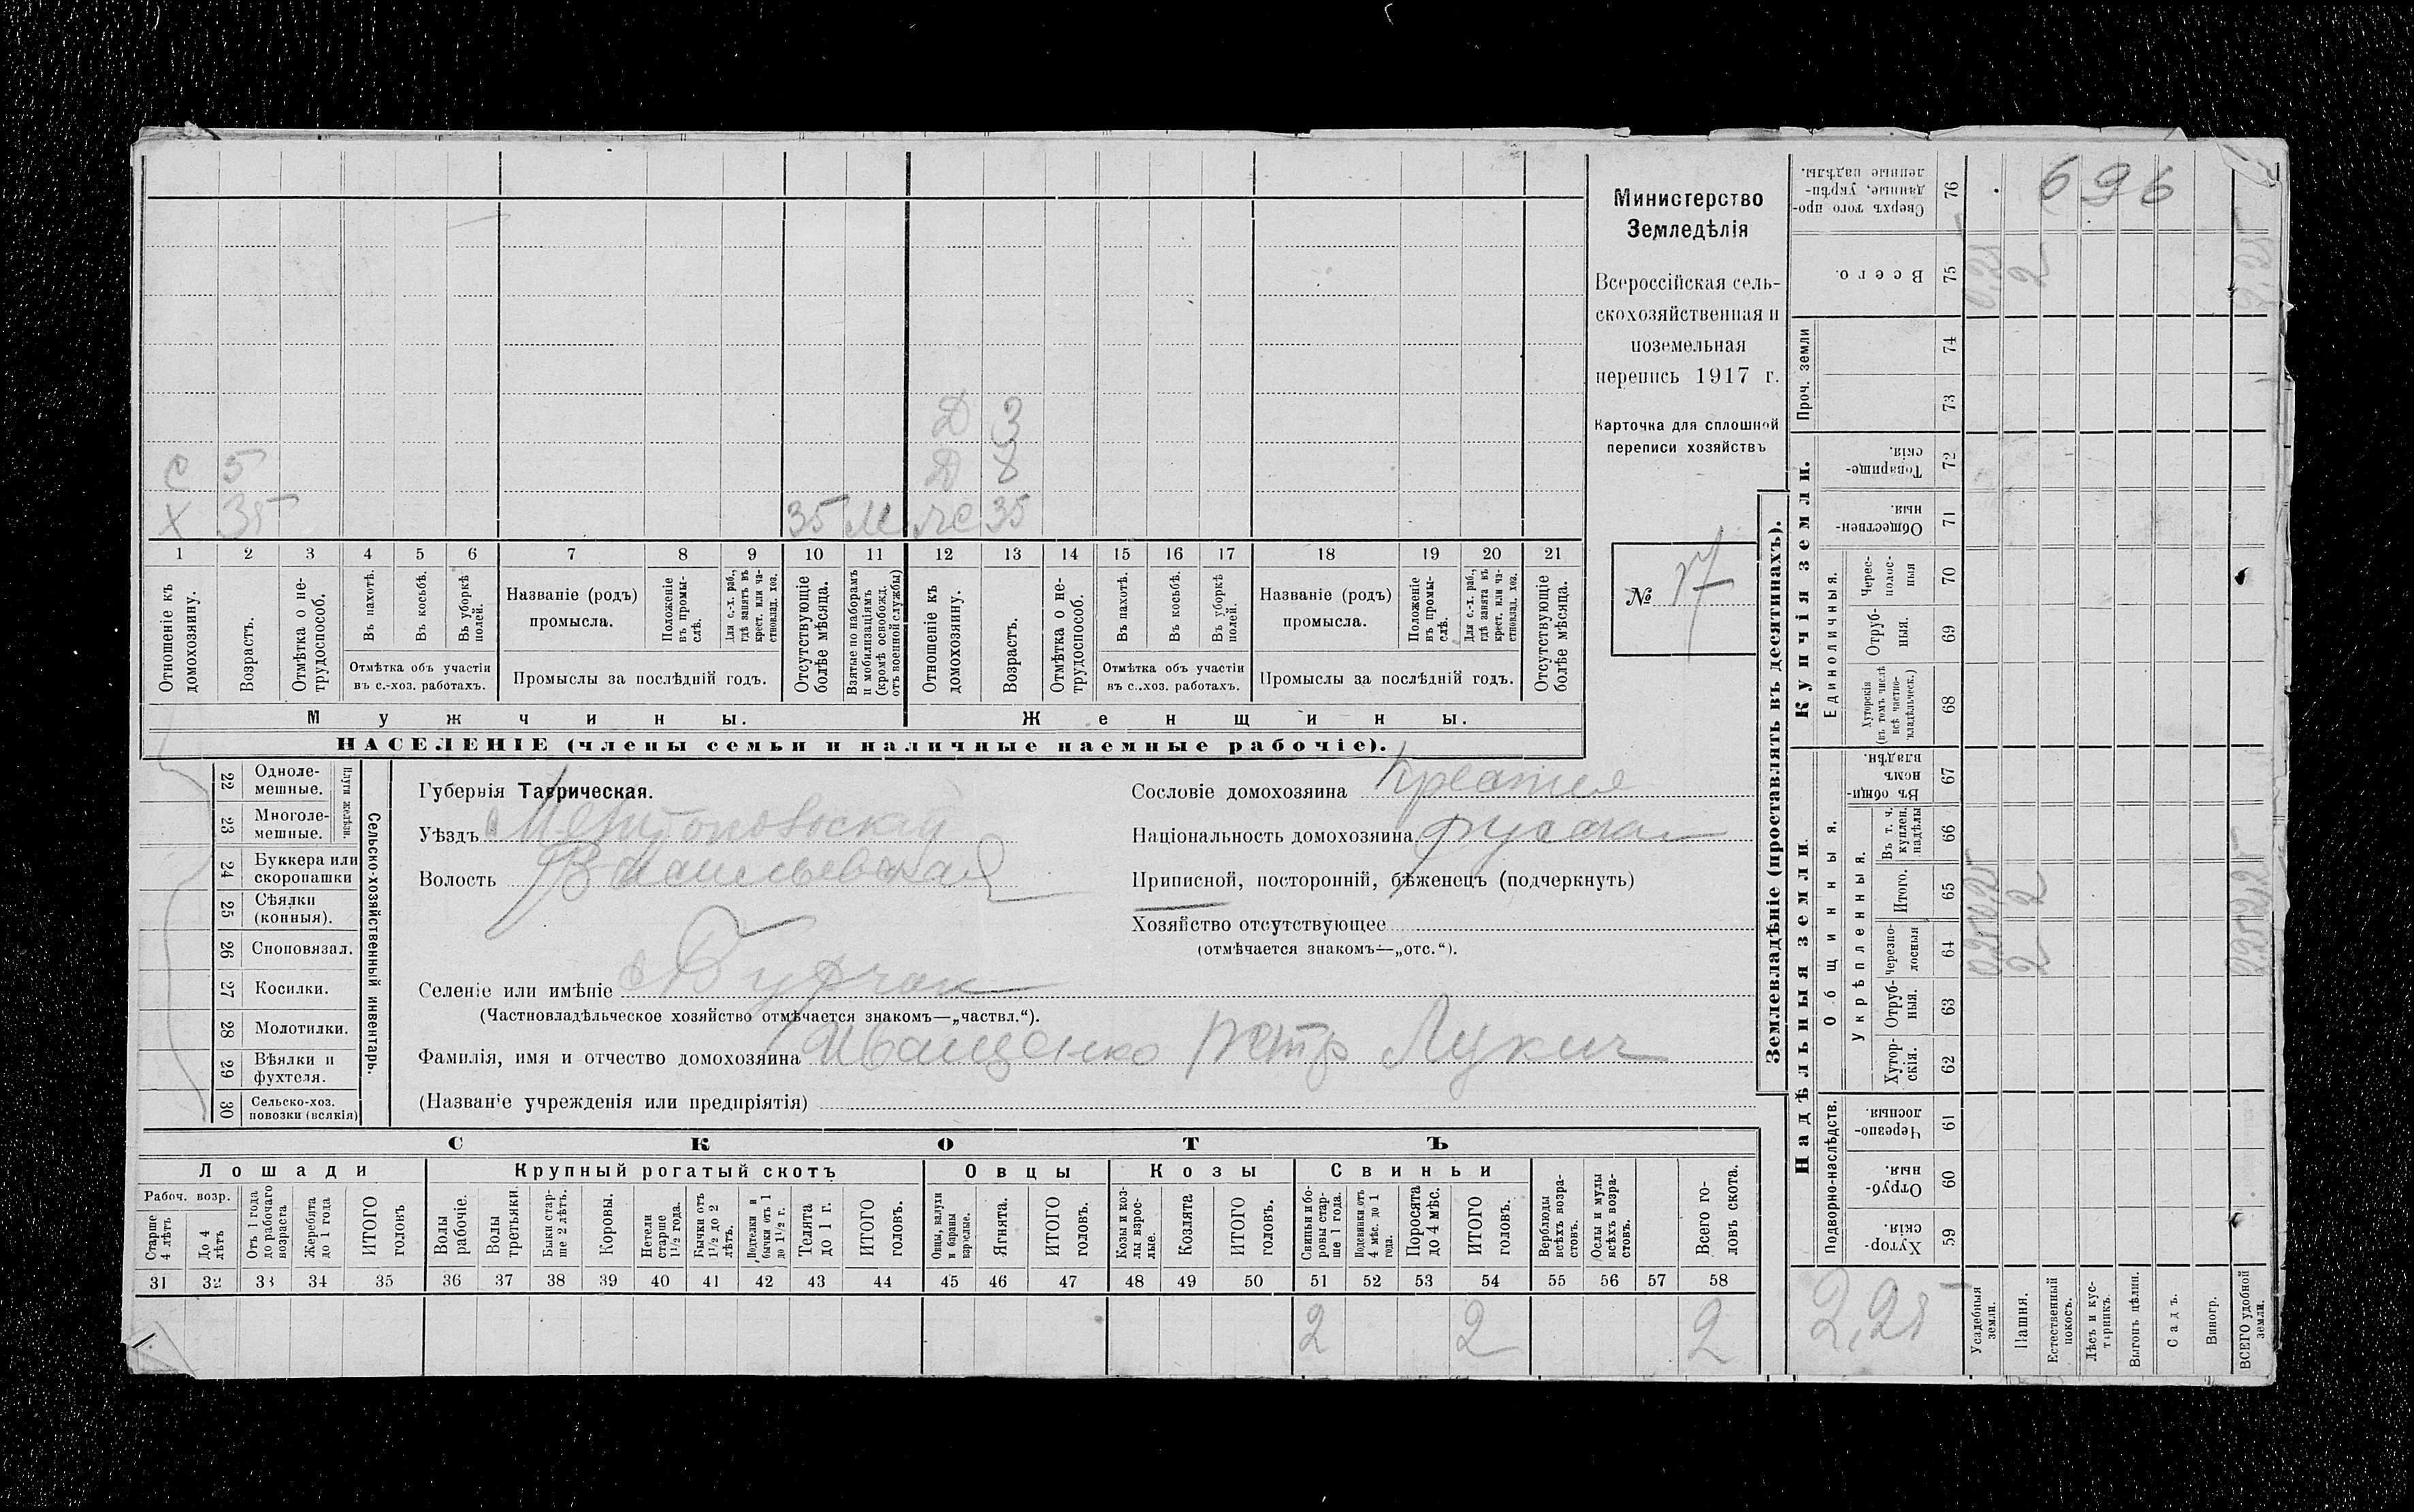 696
Министерство
Земледѣлія
Всероссійская сель-
скохозяйственная и
поземельная
перепись 1917 г.
Карточка для сплошной
переписи хозяйствъ
№ 17
Д 3
С 5 Д 8
Х 35 35 М Ж 35
1 2 3 4 5 6 7 8 9 10 11 12 13 14 15 16 17 18 19 20 21
Отношеніе къ домохозяину.
Возрастъ.
Отмѣтка о не-трудоспособ.
Въ пахотѣ.
Въ косьбѣ.
Въ уборкѣ полей.
Отмѣтка объ участіи въ с.-хоз. работахъ.
Названіе (родъ) промысла.
Положеніе въ промы-слѣ.
Для с.-х. раб., гдѣ занятъ въ крест. или ча-стновлад. хоз.
Промыслы за послѣдній годъ.
Отсутствующіе болѣе мѣсяца.
Взятые по наборамъ и мобилизаціямъ (кромѣ освобожд. отъ военной службы)
Отношеніе къ домохозяину.
Возрастъ.
Отмѣтка о не-трудоспособ.
Въ пахотѣ.
Въ косьбѣ.
Въ уборкѣ полей.
Отмѣтка объ участіи въ с..хоз. работахъ.
Названіе (родъ) промысла.
Положеніе въ промы-слѣ.
Для с.-х. раб., гдѣ занята въ крест. или ча-стновлад. хоз.
Промыслы за послѣдній годъ.
Отсутствующіе болѣе мѣсяца.
Мужчины. Женщины.
НАСЕЛЕНІЕ (члены семьи и наличные наемные рабочіе).
Сельско-хозяйственный инвентарь.
Плуги желѣзн.
22 Одноле-мешные.
23 Многоле-мешные.
24 Буккера или скоропашки
25 Сѣялки (конныя).
26 Сноповязал.
27 Косилки.
28 Молотилки.
29 Вѣялки и фухтеля.
30 Сельско-хоз. повозки (всякія)
Губернія Таврическая.
Уѣздъ Мелитопольскій
Волость Васильевская
Селеніе или имѣніе
(Частновладѣльческое хозяйство отмѣчается знакомъ—„частвл.“).
Фамилія, имя и отчество домохозяина Иващенко Петр Лукич
(Названіе учрежденія или предпріятія)
Сословіе домохозяина
Національность домохозяина
Приписной, посторонній, бѣженецъ (подчеркнуть)
Хозяйство отсутствующее
(отмѣчается знакомъ—„отс.“).
СКОТЪ
Лошади Крупный рогатый скотъ Овцы Козы Свиньи
Рабоч. возр.
Старше 4 лѣтъ
До 4 лѣтъ
Отъ 1 года до рабочаго возраста
Жеребята до 1 года
ИТОГО головъ
Волы рабочіе.
Волы третьяки.
Быки стар-ше 2 лѣтъ.
Коровы.
Нетели старше 1½ года.
Бычки отъ 1½ до 2 лѣтъ.
Подтелки и бычки отъ 1 до 1½ г.
Телята до 1 г.
ИТОГО головъ.
Овцы, валухи и бараны взрослые.
Ягнята.
ИТОГО головъ.
Козы и коз-лы взрос-лые.
Козлята
ИТОГО головъ.
Свиньи и бо-ровы стар-ше 1 года.
Подсвинки отъ 4 мѣс. до 1 года.
Поросята до 4 мѣс.
ИТОГО головъ.
Верблюды всѣхъ возра-стовъ.
Ослы и мулы всѣхъ возра-стовъ.
Всего го-ловъ скота.
31 32 33 34 35 36 37 38 39 40 41 42 43 44 45 46 47 48 49 50 51 52 53 54 55 56 57 58
2 2 2
Землевладѣніе (проставлять въ десятинахъ).
Надѣльныя земли. Купчія земли. Проч. земли
Подворно-наслѣдств.
Общинныя.
Укрѣпленныя.
Единоличныя.
59 Хутор-скія.
60 Отруб-ныя.
61 Черезпо-лосныя.
62 Хутор-скія.
63 Отруб-ныя.
64 Черезпо-лосныя 0,25 2 2,25
65 Итого. 0,25 2 2,25
66 Въ т. ч. куплен. надѣлы
67 Въ общи-номъ владѣн.
68 Хуторскія (въ томъ числѣ всѣ частно-владѣльческ.)
69 Отруб-ныя.
70 Черес-полос-ныя
71 Обществен-ныя.
72 Товарище-скія.
73
74
75 Всего. 0,25 2 2,25
76 Сверхъ того про-данные, укрѣп-ленные надѣлы.
2,25
Усадебныя земли.
Пашня.
Естественный покосъ.
Лѣсъ и кус-тарникъ.
Выгонъ цѣлин.
Садъ.
Виногр.
ВСЕГО удобной земли.